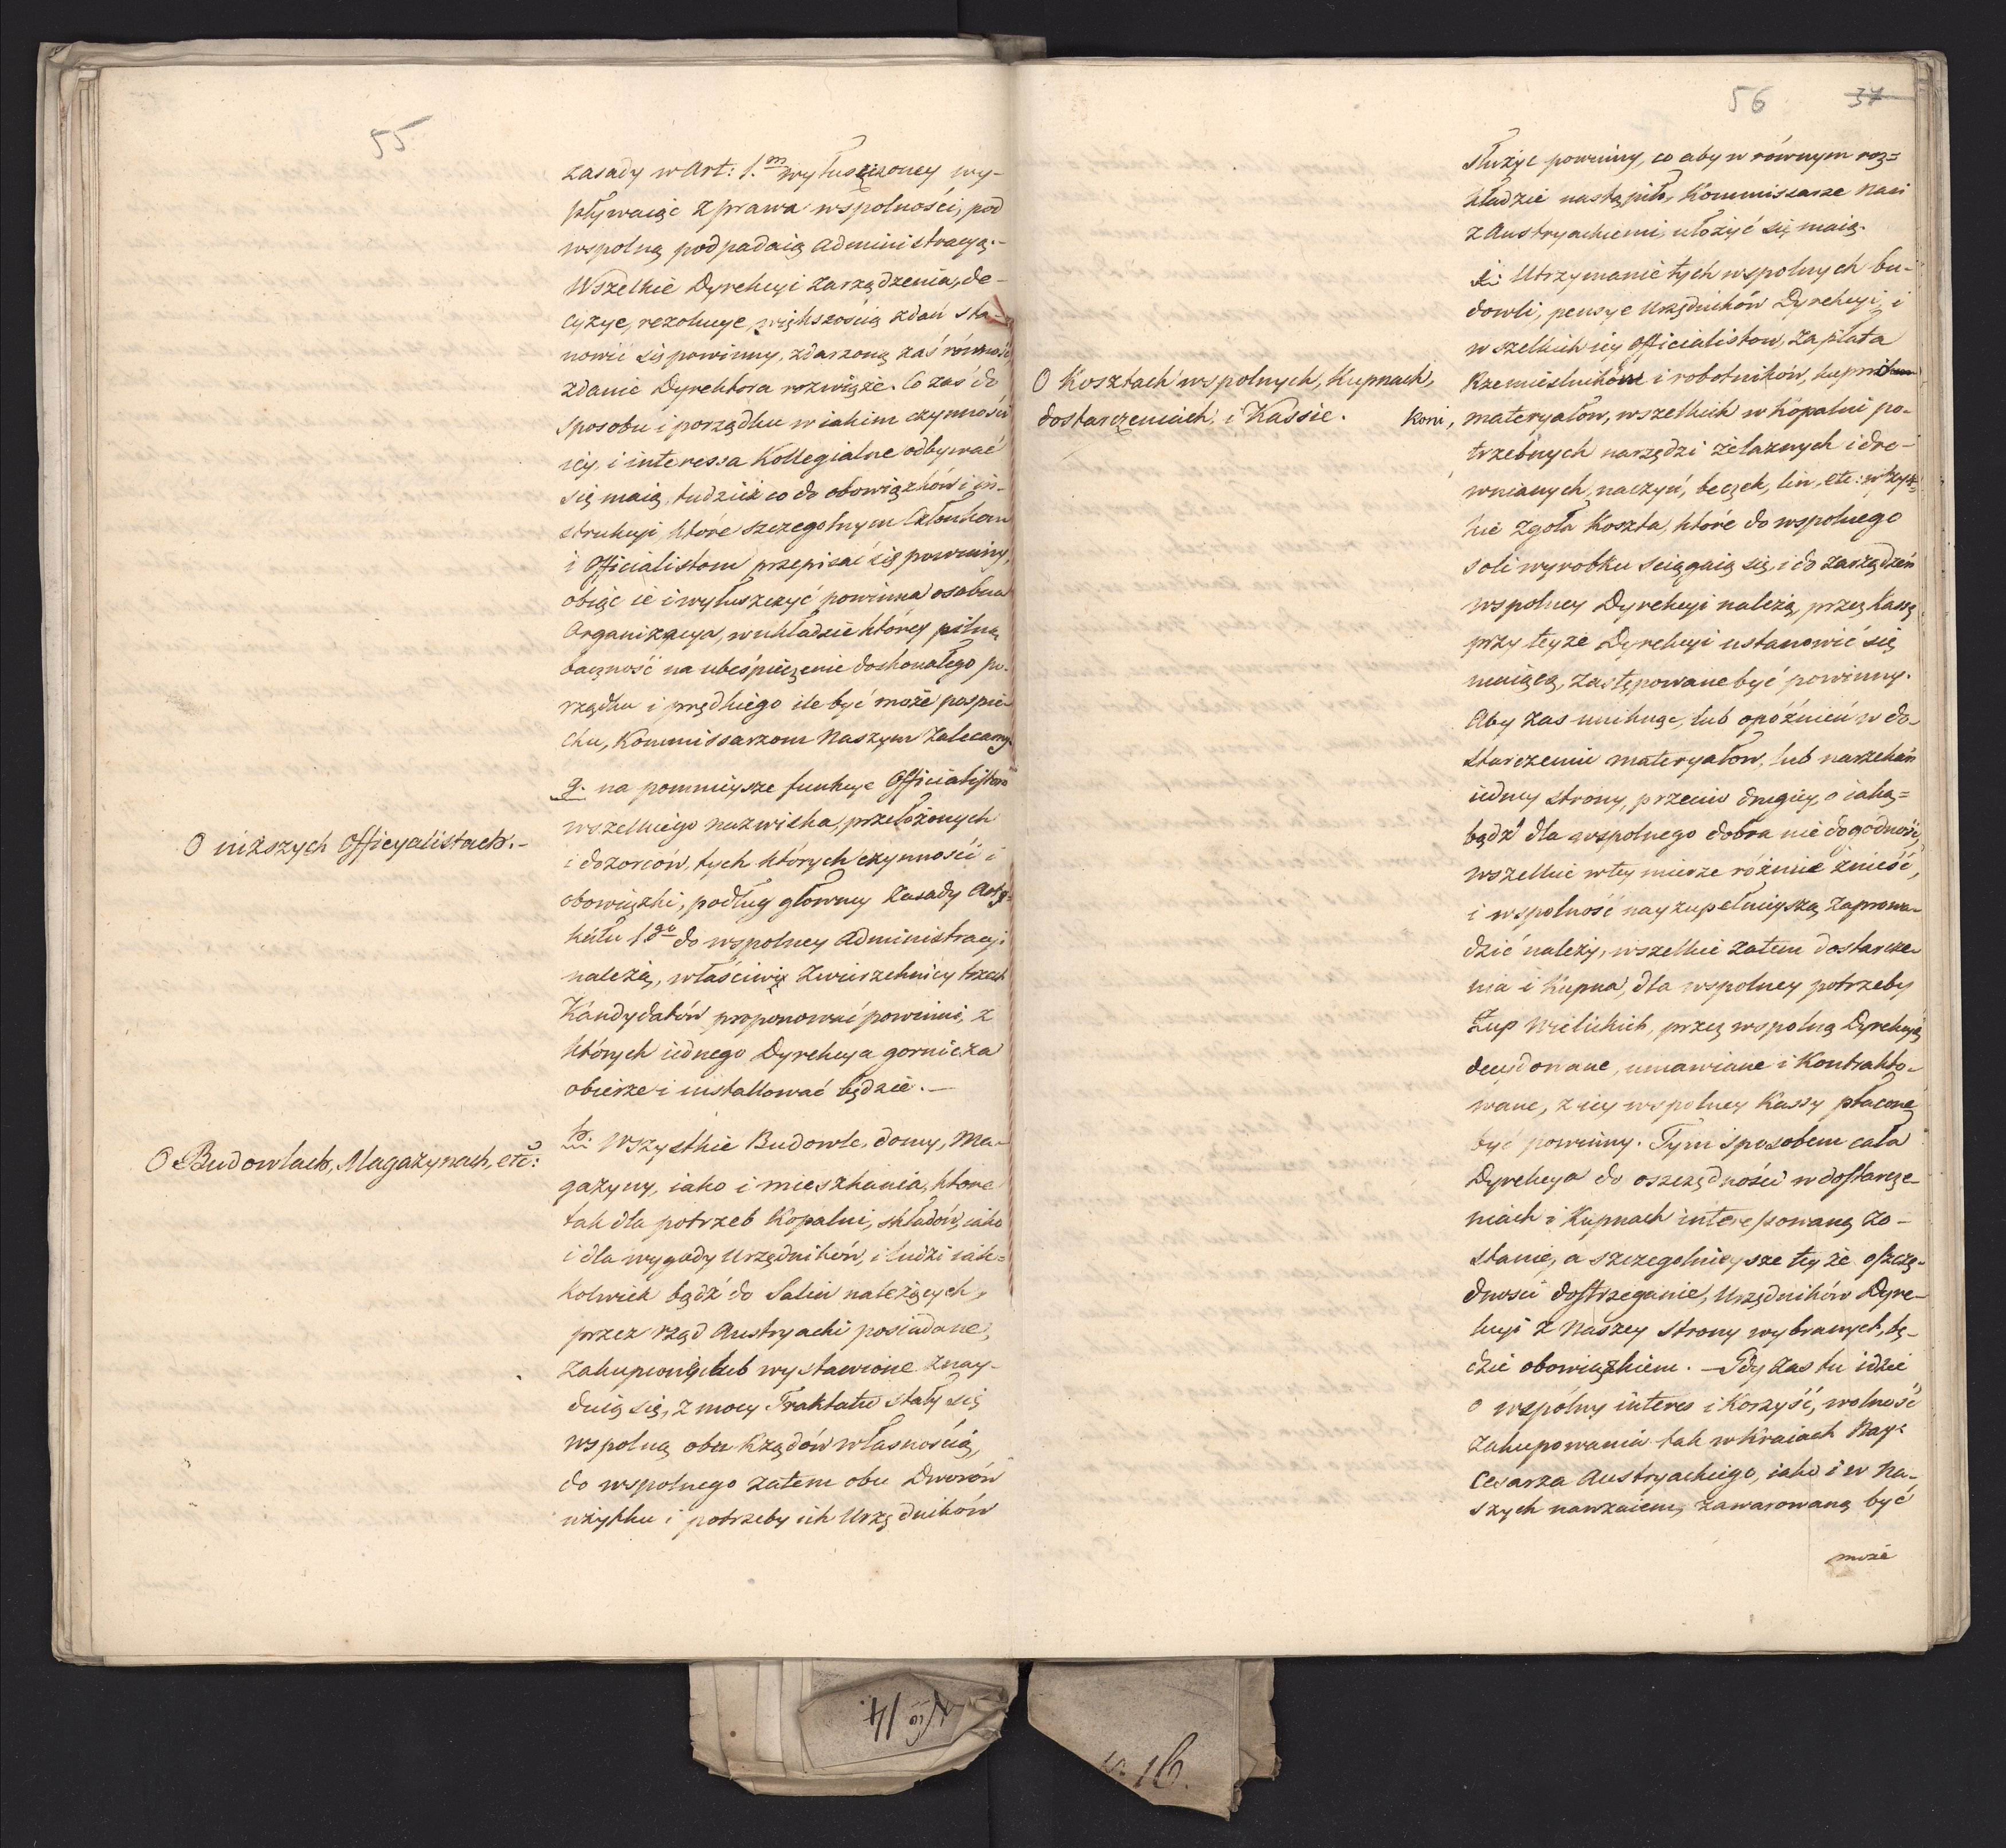 55
zasady w Art: 1.m wyłuszczoney wy-
pływaiąc z prawa wspolności, pod
wspolną podpadaią administracyą.-
Wszelkie Dyrekcyi zarządzenia, de-
cyzye, rezolucye, większością zdań sta-
nowić się powinny, zdarzoną zaś równość
zdanie Dyrektora rozwiąże. Co zaś do
sposobu i porządku w iakim czynności
iey, i interessa Kollegialne odbywać
się maią, tudzież co do obowiązków i in-
strukcyi, które szczegolnym Członkom
i Officialistom przepisać się powinny,
obiąc ie i wyłuszczyć powinna osobna
Organizacya, w układzie którey pilną
baczność na ubespieczenie doskonałego po-
rządku i prędkiego ile być może pospie-
chu, Kommissarzom Naszym zalecamy.
O niższych Officyalistach.-
g. na pomnieysze funkcye Officialistów
wszelkiego nazwiska, przełożonych
i dozorców, tych których czynności i
obowiązki, podług głowney zasady Arty-
kułu 1go do wspolney Administracyi
należą, właściwi Zwierzchnicy trzech
Kandydatów proponować powinni, z
których iednego Dyrekcya gornicza
obierze i installować będzie.—
O Budowlach, Magazynach, etc:
h: Wszystkie Budowle, domy, Ma-
gazyny, iako i mieszkania, które
tak dla potrzeb Kopalni, składów, iako
i dla wygody Urzędników, i ludzi iak-
kolwiek bądź do Salin należących,
przez rząd Austryacki posiadane,
zakupione lub wystawione znay-
duią się, z mocy Traktatu stały się
wspolną obu Rządów własnością,
do wspolnego zatem obu Dworów
użytku i potrzeby ich Urzędników
56 37
służyć powinny, co aby w równym roz=
kładzie nastąpiło, Kommissarze Nasi
z Austryackiemi, ułożyć się maią.
O Kosztach wspolnych, Kupnach,
dostarczeniach, i Kassie.
i: Utrzymanie tych wspolnych bu-
dowli, pensye Urzędników Dyrekcyi, i
wszelkich iey Officialistow, Zapłata
Rzemieslników i robotników, kupno
Koni, materyałow, wszelkich w Kopalni po-
trzebnych narzędzi żelaznych i dre-
wnianych, naczyń, beczek, lin, etc: wszyst-
kie zgoła Koszta, które do wspolnego
soli wyrobku sciągaią się, i do zarządzeń
wspolney Dyrekcyi należą, przez kassę
przy teyże Dyrekcyi ustanowić się
maiącą, zastępowane być powinny.
Aby zas uniknąc, lub opóźnień w do-
starczeniu materyałow, lub narzekań
iedney strony, przeciw drugiey, o iaką=
bądź dla wspolnego dobra niedogodność,
wszelkie w tey mierze różnice znieść,
i wspolność nayzupełnieyszą zaprowa-
dzić należy, wszelkie zatem dostarcze-
nia i Kupna, dla wspolney potrzeby
Żup Wielickich, przez wspolną Dyrekcyą
decydowane, umawiane i Kontrakto-
wane, z iey wspolney Kassy płacone
być powinny. Tym sposobem cała
Dyrekcya do oszczędności w dostarcze-
niach i Kupnach interessowaną zo-
stanie, a szczegolnieysze teyże oszczę-
dności dostrzeganie, Urzędników Dyre-
kcyi z Naszey strony wybranych, bę-
dzie obowiązkiem. — Gdy zas tu idzie
o wspólny interes i Korzyść, wolność
zakupowania tak w Kraiach Nayj:
Cesarza Austryackiego, iako i w Na-
szych nawzaiem, zawarowaną być
może
No 14.
16.